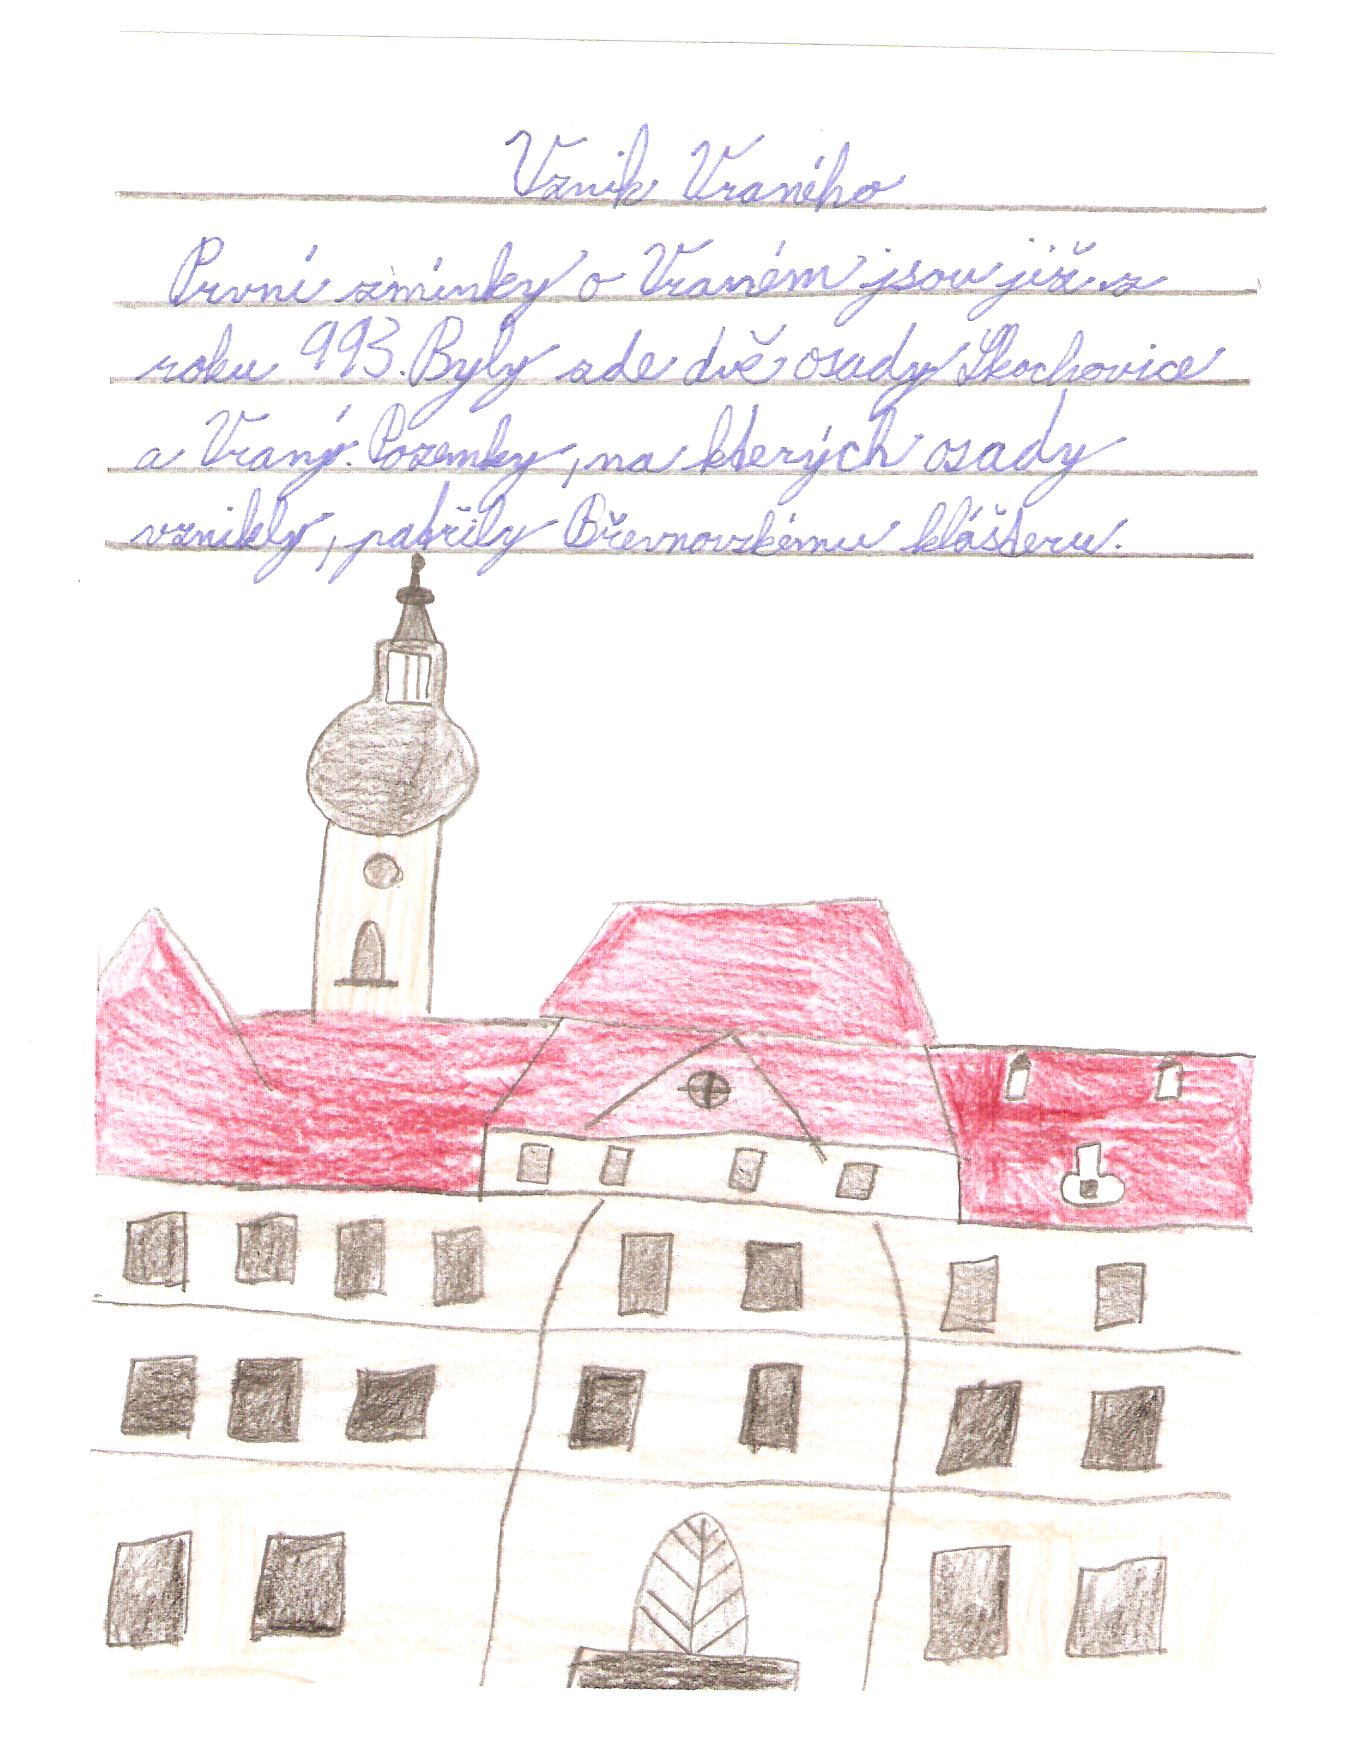 Vznik Vraného
První zmínky o Vraném jsou již z
roku 993. Byly zde dvě osady Skochovice
a Vraný. Pozemky, na kterých osady
vznikly, patřily Břevnovskému klášteru.